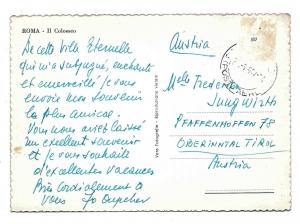 ROMA - Il Colosseo
De cette Ville Eternelle
qui m'a subjugué, enchanté
et émerveillé je vous
envoie mon souvenir
le plus amical.
Vous nous avez laissé
un excellent souvenir
et je vous souhaite
d'excellentes vacances
Très Cordialement à
vous
Vera Fotografia - Riproduzione vietata
Austria
Melle Frederike
Jungwirth
PFAFFENHOFFEN 78
OBERINNTAL TIROL
Austria